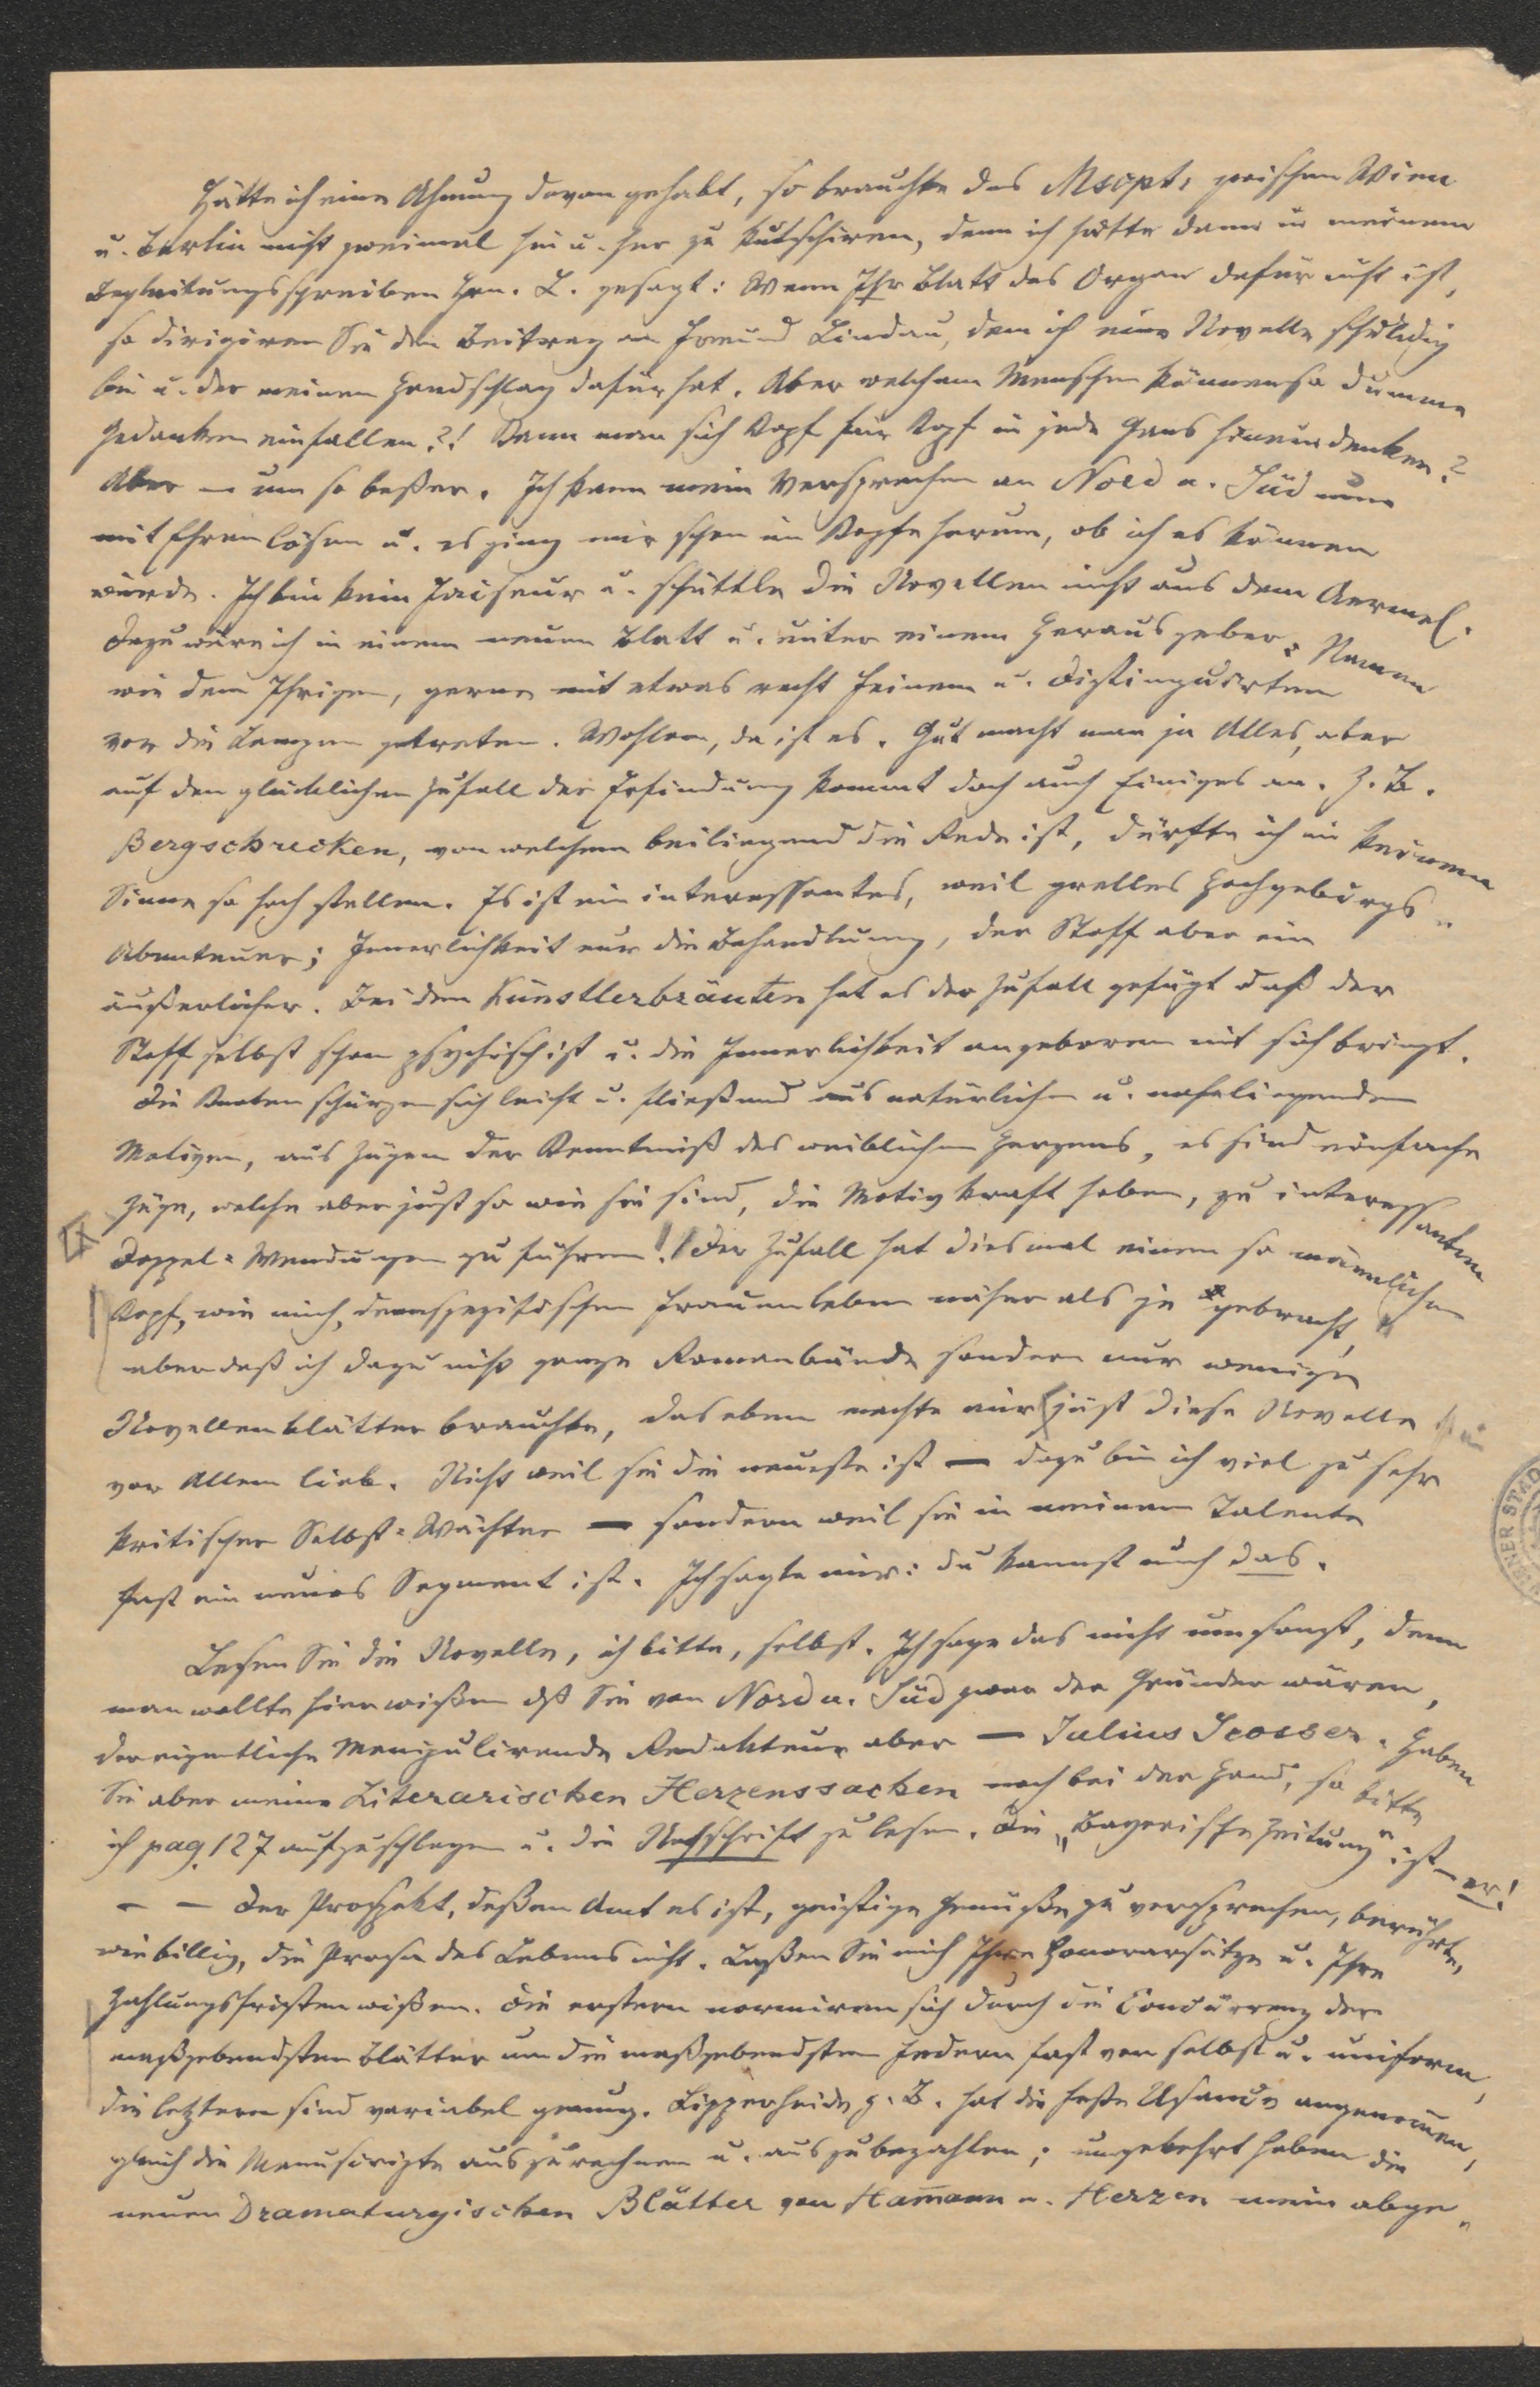 Hätte ich eine Ahnung davon gehabt, so brauchte das Mscpt. zwischen Wien
u. Berlin nicht zweimal hin u. her zu kutschiren, denn ich hätte dann in meinem
Begleitungsschreiben Hrn. L. gesagt: Wenn Ihr Blatt das Organ dafür nicht ist,
so dirigiren Sie den Beitrag an Freund Lindau, dem ich eine Novelle schuldig
bin u. der meinen Handschlag dafür hat. Aber welchem Menschen können so dumme
Gedanken einfallen?! Kann man sich Kopf für Kopf in jede Gans hineindenken?
Aber – um so beßer. Ich kann mein Versprechen an Nord u. Süd nun
mit Ehren lösen u. es ging mir schon im Kopfe herum, ob ich es können
würde. Ich bin kein Faiseur u. schüttle die Novellen nicht aus dem Aermel.
Dazu wäre ich in einem neuen Blatt u. unter einem Herausgeber-Namen
wie dem Ihrigen, gerne mit etwas recht Feinem u. Distinguirtem
vor die Lampen getreten. Wohlan, da ist es. Gut macht man ja Alles, aber
auf den glücklichen Zufall der Erfindung kommt doch auch Einiges an. Z. B.
Bergschrecken, von welchem beiliegend die Rede ist, dürfte ich in keinem
Sinne so hoch stellen. Es ist ein interessantes, weil grelles Hochgebirgs-
Abenteuer; Innerlichkeit nur die Behandlung, der Stoff aber ein
äußerlicher. Bei den Künstlerbräuten hat es der Zufall gefügt daß der
Stoff selbst schon psychisch ist u. die Innerlichkeit angeboren mit sich bringt.
Die Knoten schürzen sich leicht u. fließend aus natürlichen u. naheliegenden
Motiven, aus Zügen der Kenntniß des weiblichen Herzens, es sind einfache
Züge, welche aber just so wie sie sind, die Motivkraft haben, zu interessanten
Doppel-Wendungen zu führen! Der Zufall hat diesmal einen so männlichen
Kopf, wie mich, dem spezifischen Frauenleben näher als je gebracht,
aber daß ich dazu nicht ganze Romanbände sondern nur wenige
Novellenblätter brauchte, das eben machte mir just diese Novelle
vor Allem lieb. Nicht weil sie die neueste ist – dazu bin ich viel zu sehr
kritischer Selbst-Wächter – sondern weil sie in meinem Talente
fast ein neues Segment ist. Ich sagte mir: du kannst auch das.
Lesen Sie die Novelle, ich bitte, selbst. Ich sage das nicht umsonst, denn
man wollte hier wißen dß Sie von Nord u. Süd zwar der Gründer wären,
der eigentliche Manipulirende Redakteur aber – Julius Grosser. Haben
Sie aber meine Literarischen Herzenssachen noch bei der Hand, so bitte
ich pag. 127 aufzuschlagen u. die Nachschrift zu lesen. Die „Bayerische Zeitung" ist – er!
– – Der Prospekt, deßen Amt es ist, geistige Genuße zu versprechen, berührte,
wie billig, die Prosa des Lebens nicht. Laßen Sie mich Ihre Honorarsätze u. Ihre
Zahlungsfristen wißen. Die erstern normiren sich durch die Concurrenz der
maßgebendsten Blätter um die maßgebendsten Federn fast von selbst u. uniform,
die letztern sind variabel genug. Lipperheide z. B. hat die feste Usance angenom̄en,
gleich die Manuscripte auszurechnen u. auszubezahlen; umgekehrt haben die
neuen Dramaturgischen Blätter von Ham̄ann u. Herzen mein abge-